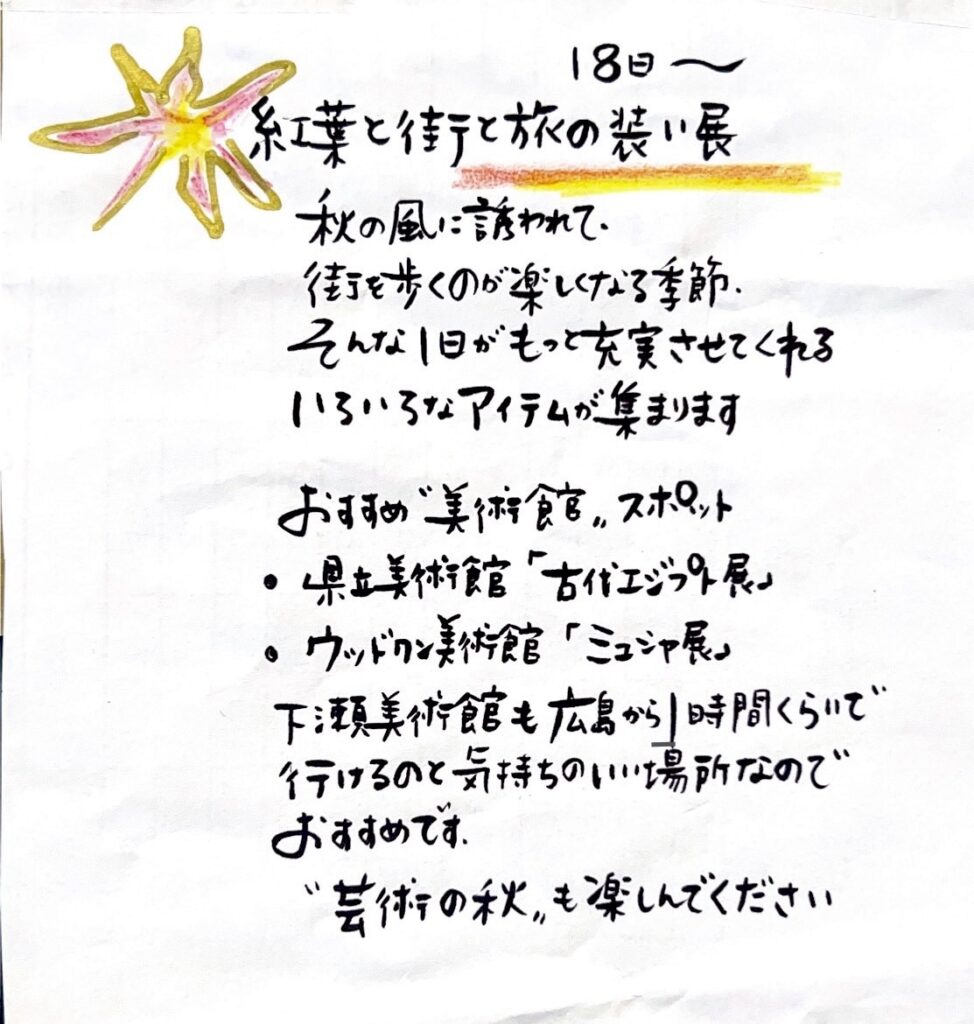 18日〜
紅葉と街と旅の装い展
秋の風に誘われて.
街を歩くのが楽しくなる季節.
そんな1日がもっと充実させてくれる
いろいろなアイテムが集まります
おすすめ〝美術館〟スポット
• 県立美術館「古代エジプト展」
• ウッドワン美術館「ミュシャ展」
下瀬美術館も広島から1時間くらいで
行けるのと気持ちのいい場所なので
おすすめです.
〝芸術の秋〟も楽しんでください